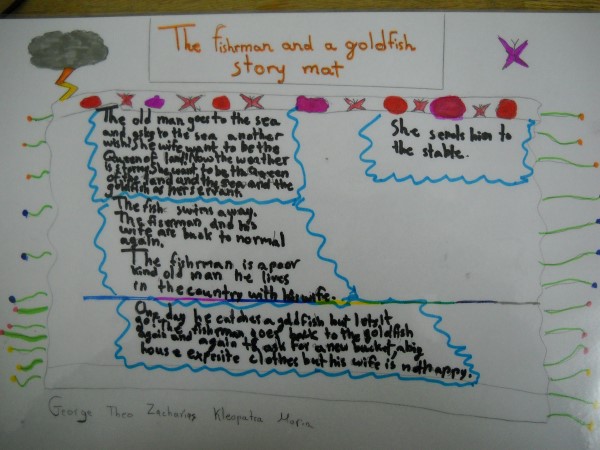 The fishrman and a goldfish
story mat
The old man goes to the sea
and asks to the sea another
wish! She wife want to be the
Queen of land! Now the weather
is stormy. She want to be the Queen
of the land and the sea and the
goldfish as her servant.
She sends him to
the stable.
The fish swims away.
The fiserman and his
wife are back to normal
again.
The fishrman is a poor
kind old man he lives
in the country with his wife.
One day he catches a goldfish but lets it
go. The fisherman goes back to the goldfish
again and again to ask for a new bucket, a big
house exposite clothes but his wife is not happy.
George Theo Zacharias Kleopatra Maria